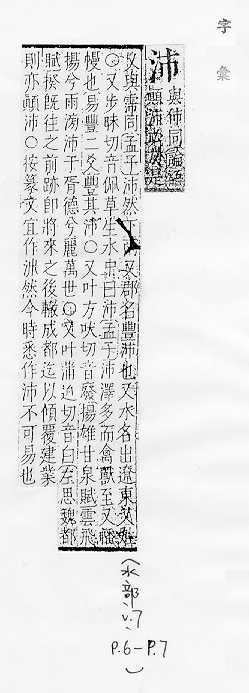 字彙
沛
與㳈同論語
顛沛必於是
又與霈同孟子沛然下雨又郡名豐沛也又水名出遼東又姓
〇又步昧切音佩草生水泉曰沛孟子沛澤多而禽獸至又幡
幔也易豐二爻豐其沛〇又叶方吠切音廢揚雄甘泉賦雲飛
揚兮雨滂沛于胥德兮麗萬世〇又叶蒲近切音白左思魏都
賦揆既往之前跡即將來之後轍成都迄以傾覆建業
則亦顛沛〇按篆文宜作㳈然今時悉作沛不可易也
(水部, v.7
P.6-P.7
)